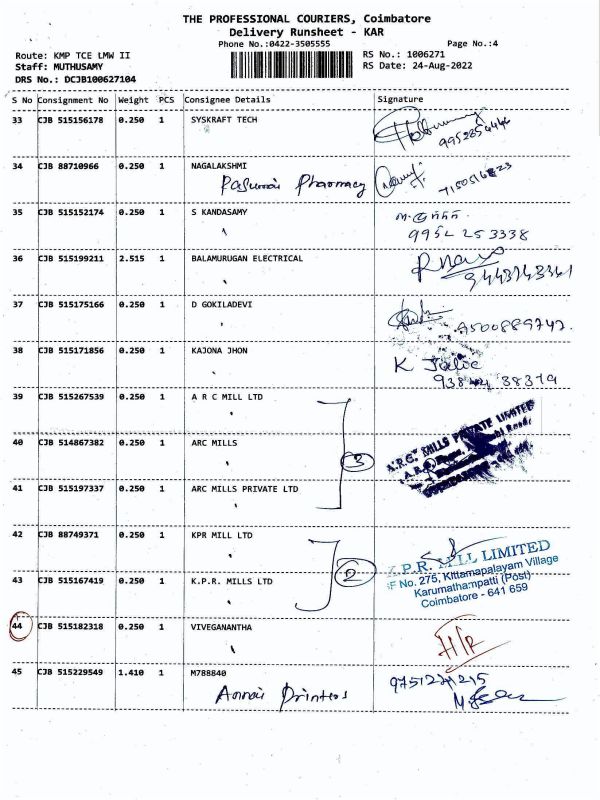 THE PROFESSIONAL COURIERS, Coimbatore
Delivery Runsheet - KAR
Phone No.:0422-3505555 Page No.:4
Route: KMP TCE LMW II RS No.: 1006271
Staff: MUTHUSAMY RS Date: 24-Aug-2022
DRS No.: DCJB100627104
S No Consignment No Weight PCS Consignee Details Signature
33 CJB 515156178 0.250 1 SYSKRAFT TECH
34 CJB 88710966 0.250 1 NAGALAKSHMI
Pasumai Pharmacy
35 CJB 515152174 0.250 1 S KANDASAMY
9952 253338
36 CJB 515199211 2.515 1 BALAMURUGAN ELECTRICAL
37 CJB 515175166 0.250 1 D GOKILADEVI
9500889742.
38 CJB 515171856 0.250 1 KAJONA JHON
K Julie
39 CJB 515267539 0.250 1 A R C MILL LTD
A.R.C. MILLS PRIVATE LIMITED
40 CJB 514867382 0.250 1 ARC MILLS
3
41 CJB 515197337 0.250 1 ARC MILLS PRIVATE LTD
42 CJB 88749371 0.250 1 KPR MILL LTD
K.P.R. MILL LIMITED
SF No. 275, Kittamapalayam Village
43 CJB 515167419 0.250 1 K.P.R. MILLS LTD
2
Karumathampatti (Post)
Coimbatore - 641 659
44 CJB 515182318 0.250 1 VIVEGANANTHA
H/R
45 CJB 515229549 1.410 1 M788840
Annai Printers